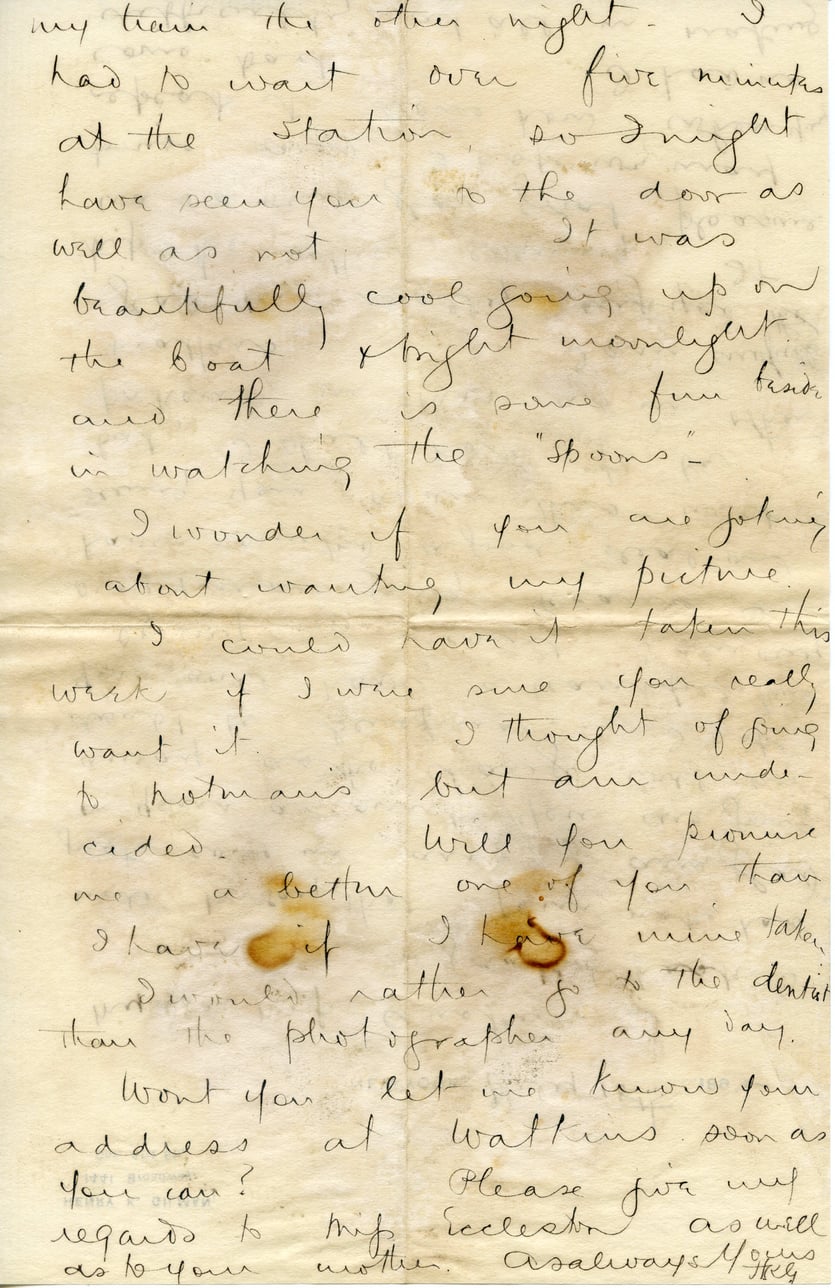 my train the other night - I
had to wait over five minutes
at the Station, so I might
have seen you to the door as
well as not It was
beautifully cool going up on
the boat & bright moonlight.
and there is some fun beside
in watching the "Spoons" -
I wonder if you are joking
about wanting my picture.
I could have it taken this
week if I were sure you really
want it. I thought of going
to notman's but am unde-
cided. Will you promise
me a better one of you than
I have if I have mine taken.
I would rather go to the dentist
than the photographer any day.
Wont you let me know your
address at Watkins soon as
you can? Please give my
regards to Miss Eccleston as well
as to your mother. As always Yours